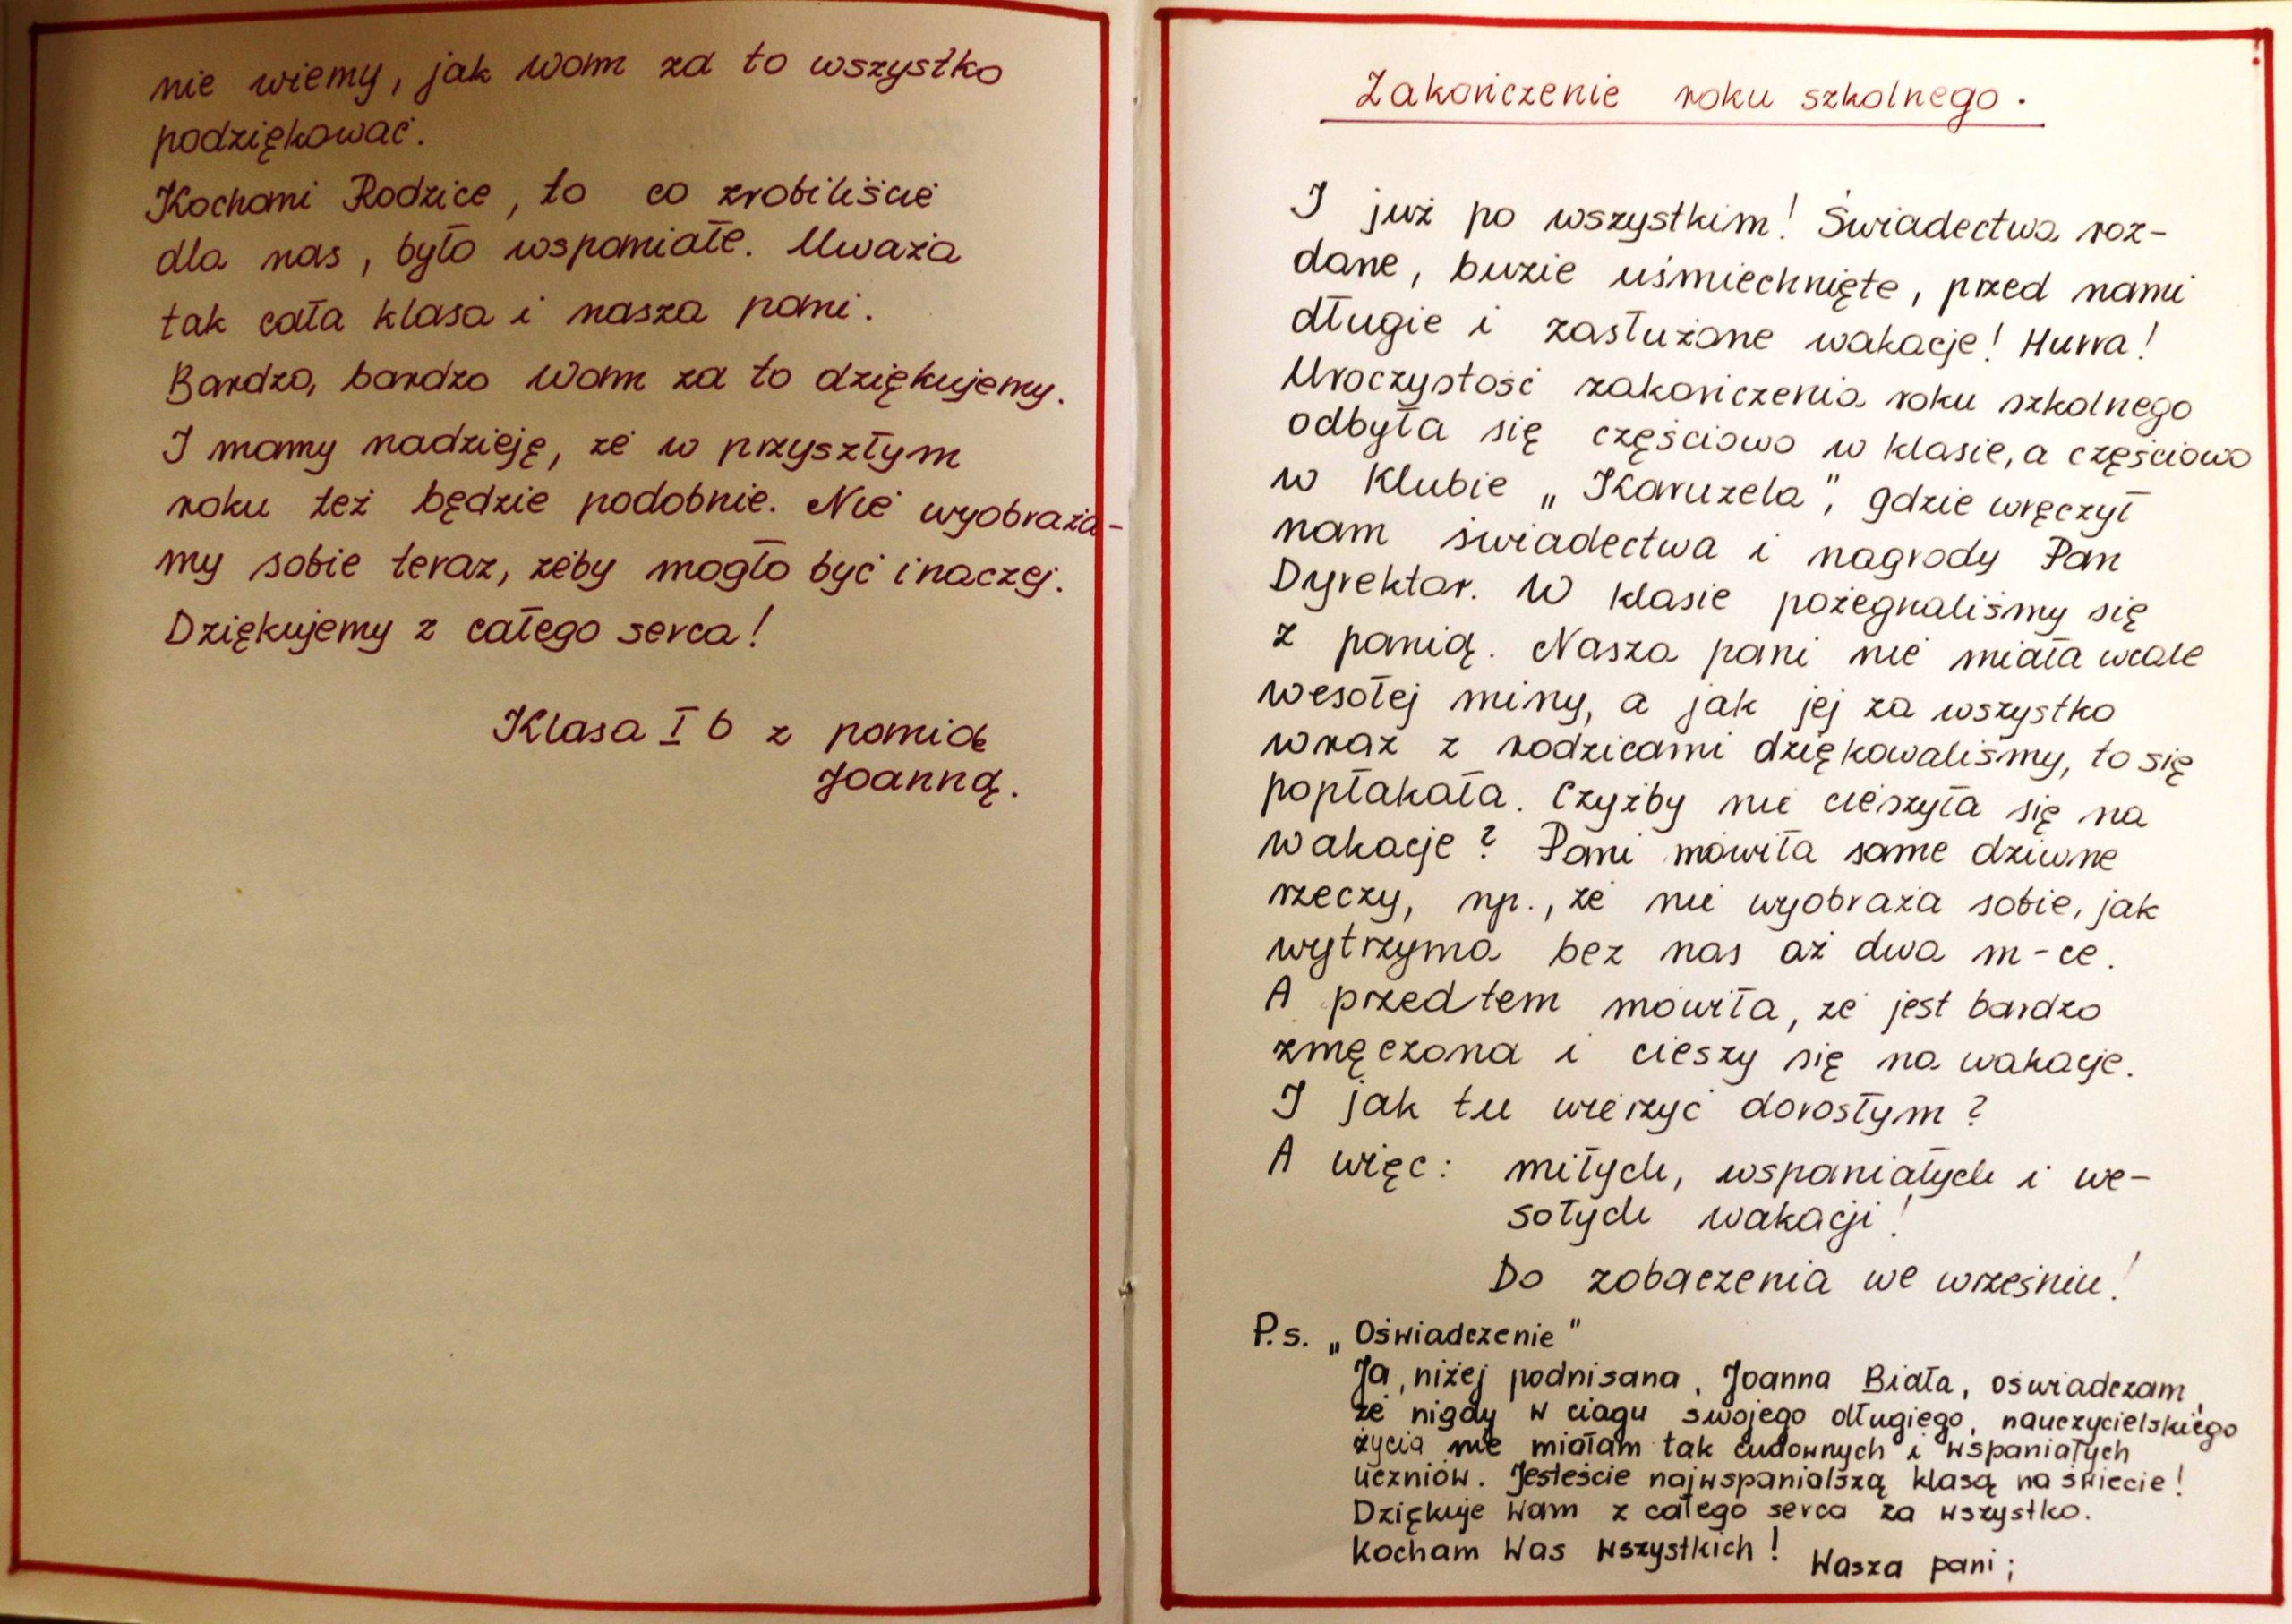 nie wiemy, jak Wam za to wszystko
podziękować.
Kochani Rodzice, to co zrobiliście
dla nas, było wspaniałe. Uważa
tak cała klasa i nasza pani.
Bardzo, bardzo Wam za to dziękujemy.
I mamy nadzieję, że w przyszłym
roku też będzie podobnie. Nie wyobraża-
my sobie teraz, żeby mogło być inaczej.
Dziękujemy z całego serca!
Klasa I b z panią
Joanną.
Zakończenie roku szkolnego.
I już po wszystkim! Świadectwa roz-
dane, buzie uśmiechnięte, przed nami
długie i zasłużone wakacje! Hurra!
Uroczystość zakończenia roku szkolnego
odbyła się częściowo w klasie, a częściowo
w Klubie „Karuzela", gdzie wręczył
nam świadectwa i nagrody Pan
Dyrektor. W klasie pożegnaliśmy się
z panią. Nasza pani nie miała wcale
wesołej miny, a jak jej za wszystko
wraz z rodzicami dziękowaliśmy, to się
popłakała. Czyżby nie cieszyła się na
wakacje? Pani mówiła same dziwne
rzeczy, np., że nie wyobraża sobie, jak
wytrzyma bez nas aż dwa m-ce.
A przedtem mówiła, że jest bardzo
zmęczona i cieszy się na wakacje.
I jak tu wierzyć dorosłym?
A więc: miłych, wspaniałych i we-
sołych wakacji!
Do zobaczenia we wrześniu!
P.s. „Oświadczenie"
Ja, niżej podpisana, Joanna Biała, oświadczam,
że nigdy w ciągu swojego długiego, nauczycielskiego
życia nie miałam tak cudownych i wspaniałych
uczniów. Jesteście najwspanialszą klasą na świecie!
Dziękuje Wam z całego serca za wszystko.
Kocham Was wszystkich! Wasza pani;